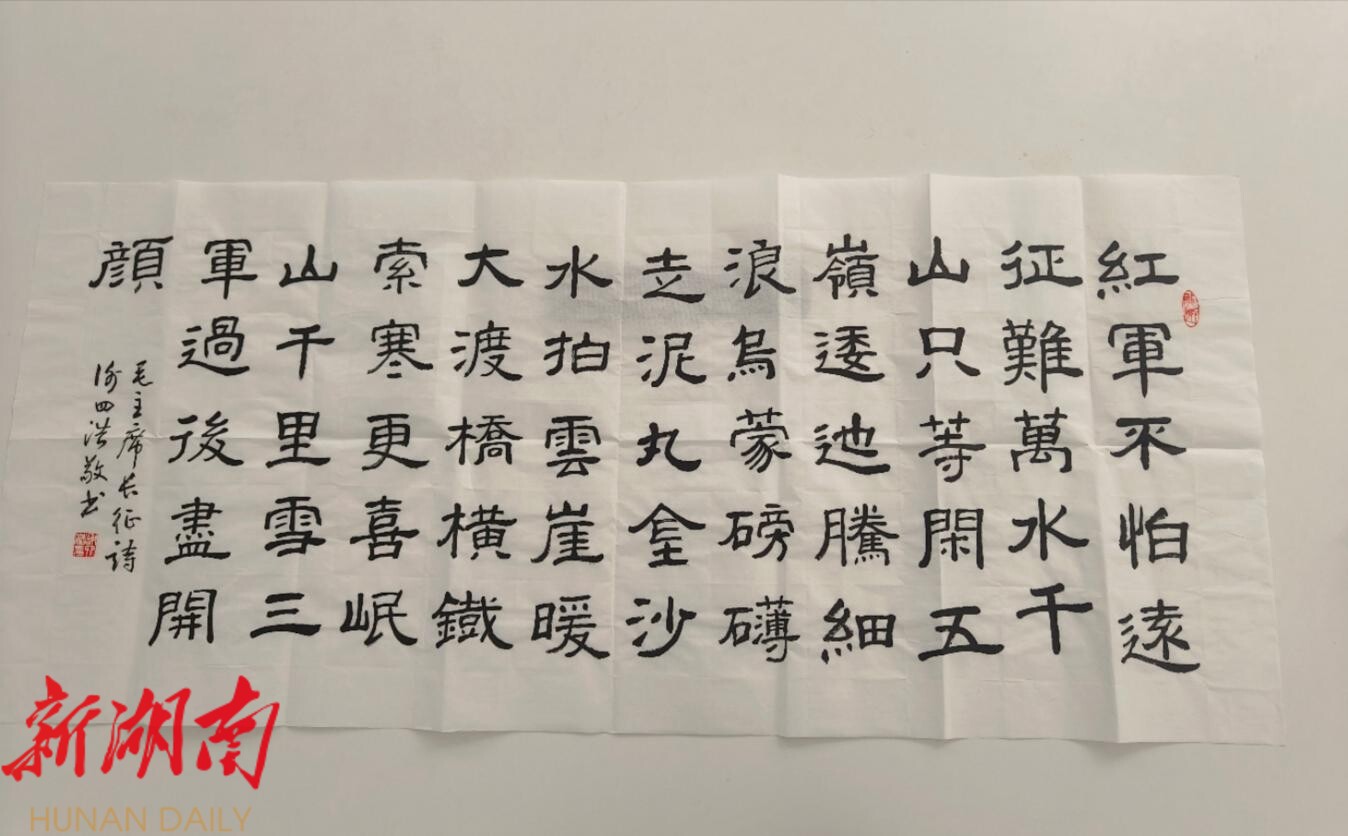 紅軍不怕遠
征難萬水千
山只等閑五
嶺逶迤騰細
浪烏蒙磅礴
走泥丸金沙
水拍雲崖暖
大渡橋橫鐵
索寒更喜岷
山千里雪三
軍過後盡開
顏
毛主席长征詩
四洪敬书
新湖南
HUNAN DAILY